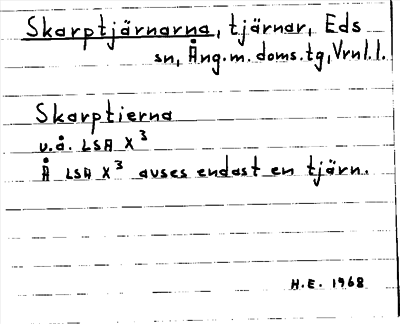 Skarptjärnarna, tjärnar, Eds
sn, Ång.m. doms.tg, Vrml.l.
Skarptierna
u.å. LSA X³
Å LSA X³ avses endast en tjärn.
H.E. 1968